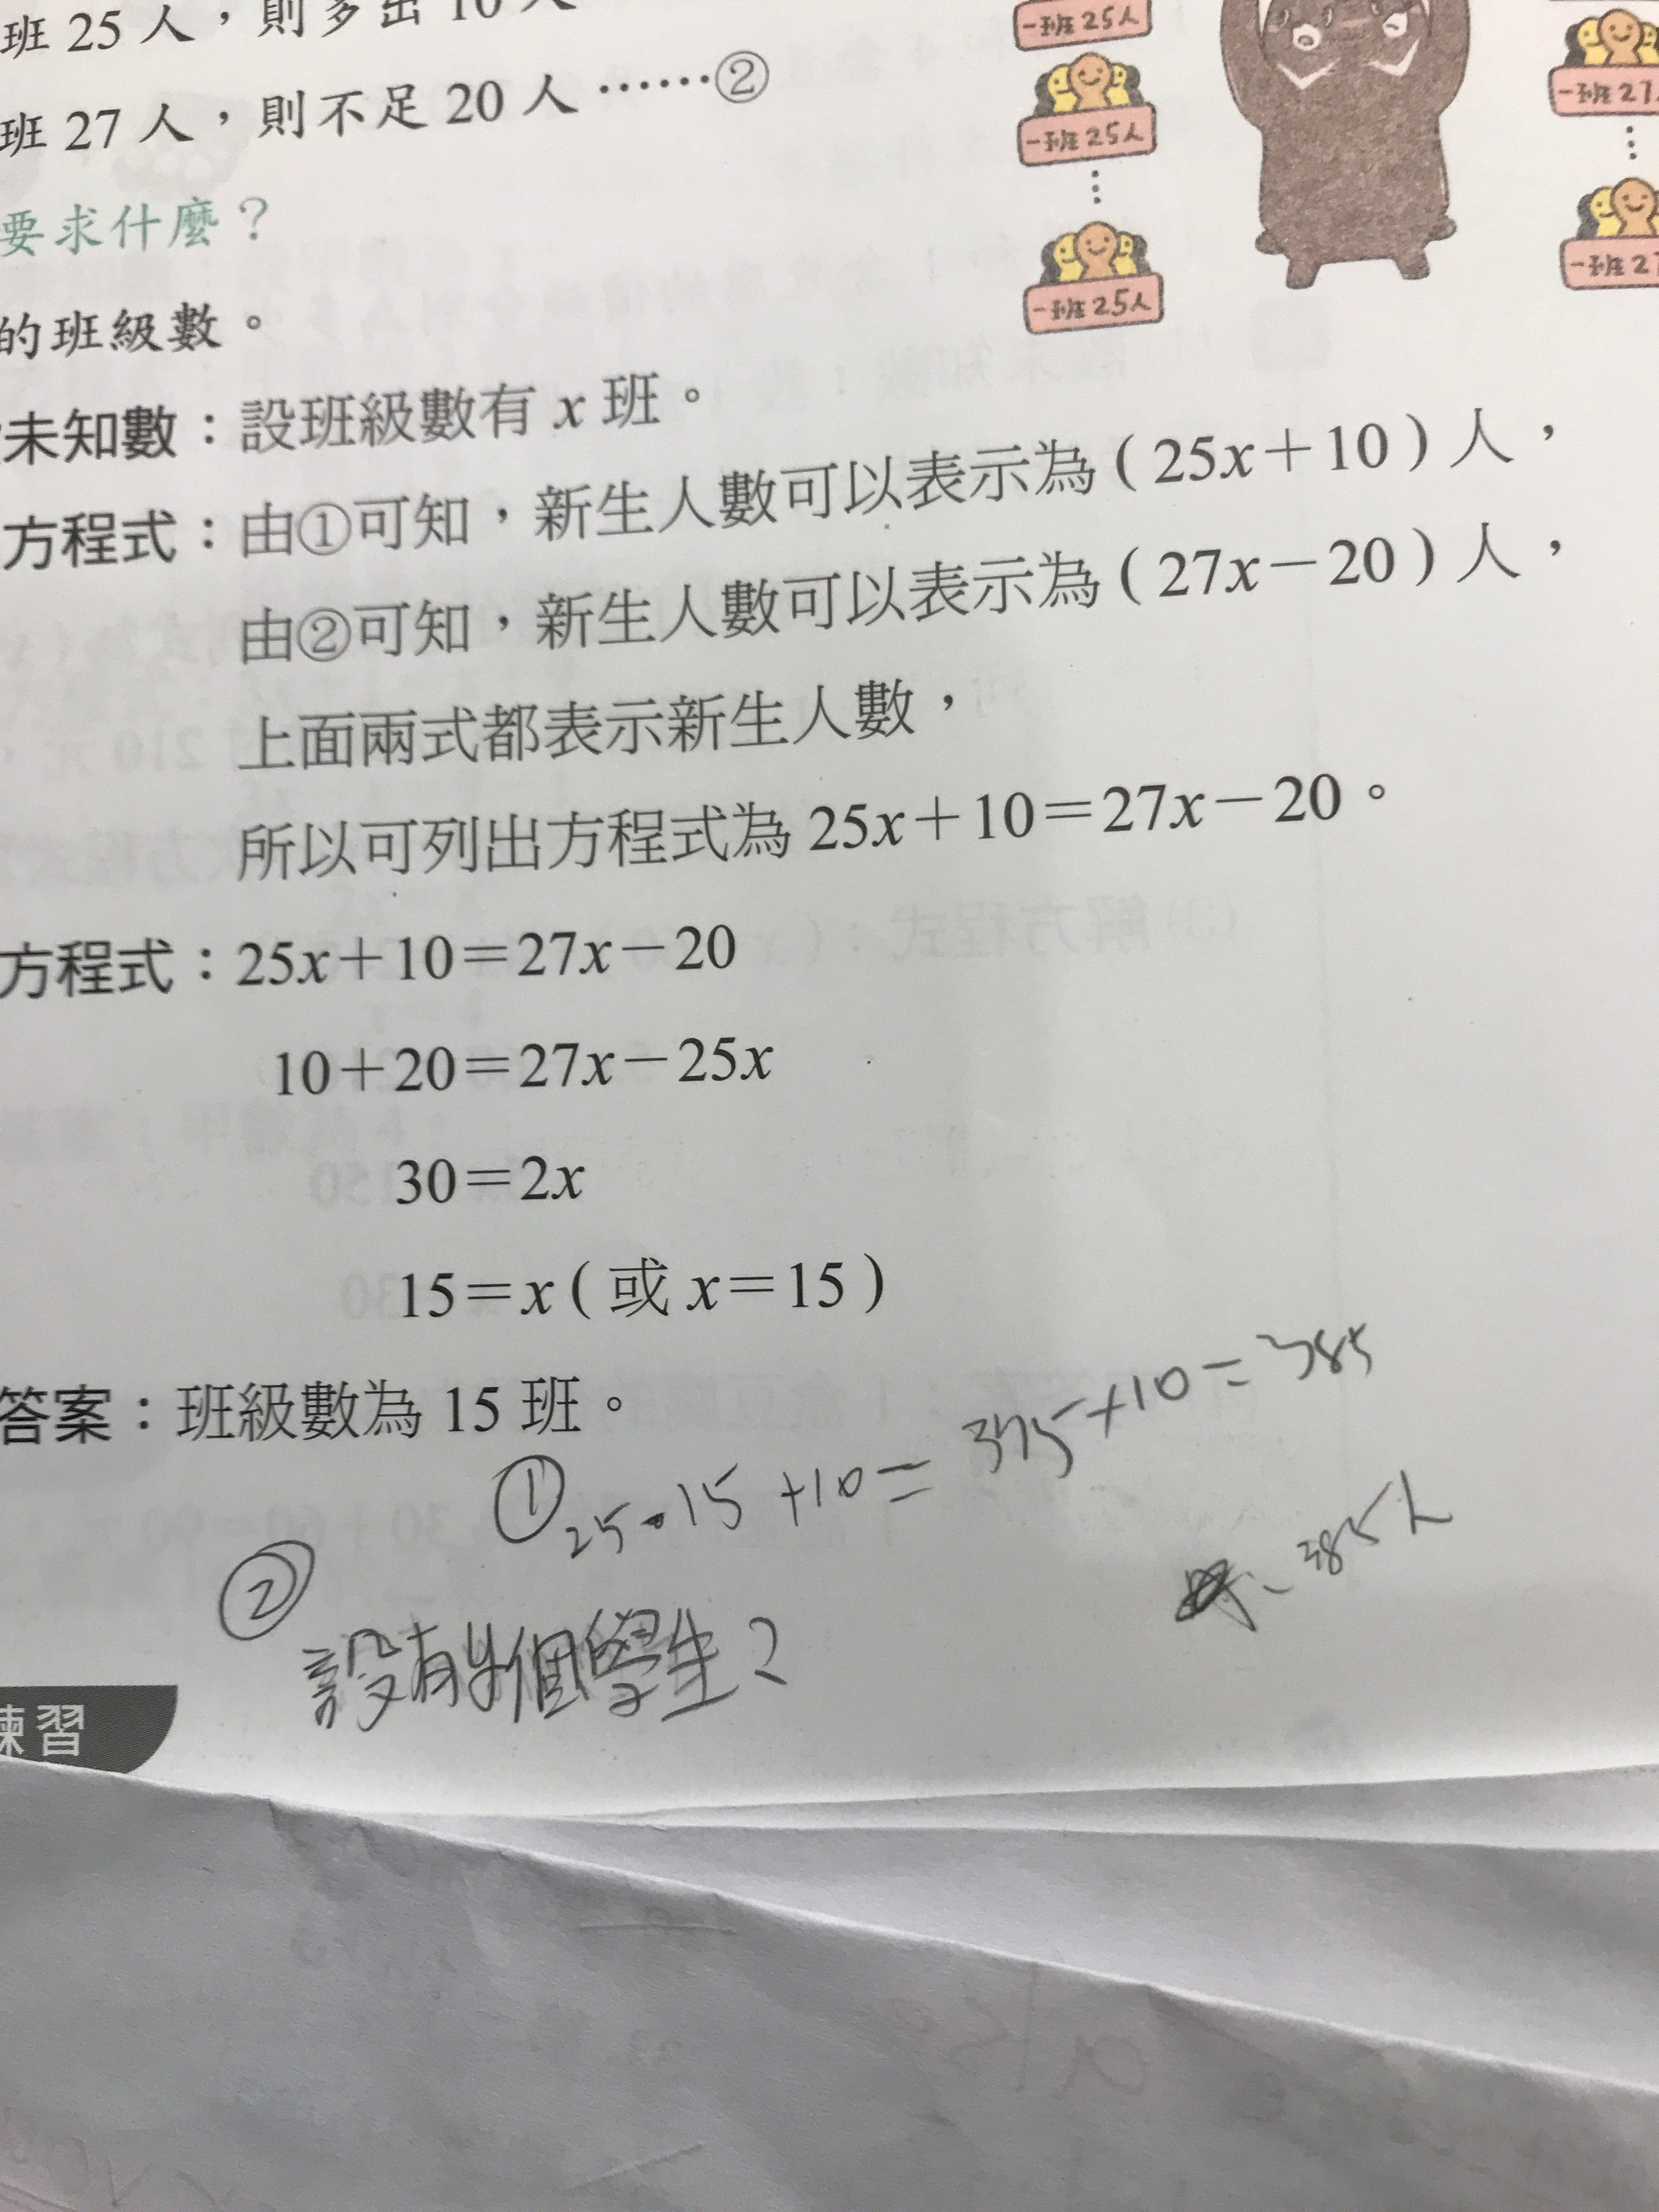 班 25 人，則多出 10 人
班 27 人，則不足 20 人 ……②
一班25人
一班25人
一班25人
一班27
一班2
要求什麼？
的班級數。
未知數：設班級數有 x 班。
方程式：由①可知，新生人數可以表示為（25x＋10）人，
由②可知，新生人數可以表示為（27x－20）人，
上面兩式都表示新生人數，
所以可列出方程式為 25x＋10＝27x－20。
方程式：25x＋10＝27x－20
10＋20＝27x－25x
30＝2x
15＝x（或 x＝15）
答案：班級數為 15 班。
① 25·15+10=375+10=385
385人
②
設有y個學生?
練習